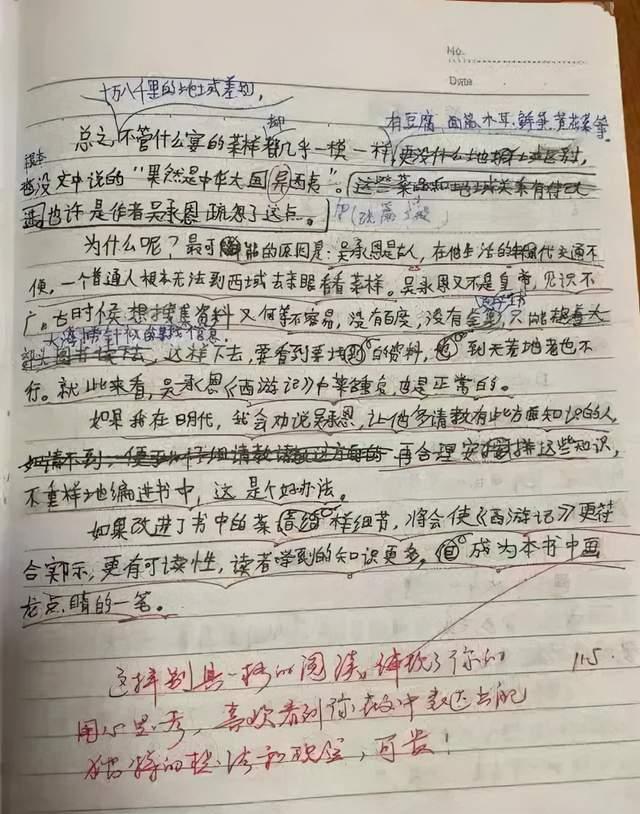 No.
Date
十万八千里的地域差别,
有豆腐、面筋、木耳、鲜笋、黄花菜等。
总之,不管什么宴的菜样都几乎一模一样,更没什么地域上区别,
根本
也没文中说的“果然是中华大国异西夷”。这些菜品和地域关系有待改
进也许是作者吴承恩疏忽了这点。
为什么呢?最可能的原因是:吴承恩是古人,在他生活的年代交通不
便,一个普通人根本无法到西域去亲眼看看菜样。吴承恩又不是皇帝,见识不
广。古时候想搜集资料又何等不容易,没有百度,没有 只能
大海捞针似的 信息。
这样下去,要看到 的资料, 到天荒地老也不
行。就此来看,吴承恩《西游记》中菜重复,也是正常的。
如果我在明代,我会劝说吴承恩,让他多请教有此方面知识的人,
再合理安排这些知识,
不重样地编进书中,这是个好办法。
如果改进了书中的菜 样细节,将会使《西游记》更符
合实际,更有可读性,读者学到的知识更多, 成为本书中画
龙点睛的一笔。
这样别具一格的阅读,体现了你的
用心思考,喜欢看到你在文中表达出的
独特的想法和观念,可贵!
11.5